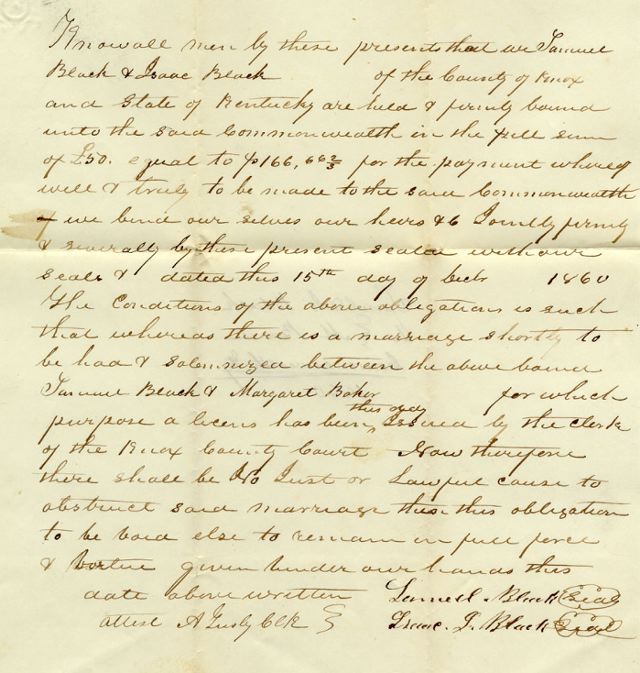 Know all men by these presents that we Samuel
Black & Isaac Black of the County of Knox
and State of Kentucky are held & firmly bound
unto the said Commonwealth in the full sum
of £50. equal to $166,66⅔ for the payment whereof
well & truly to be made to the said Commonwealth
we bind our selves our heirs &c Joinlly firmly
& severally by these present seald with our
seals & dated this 15th day of Decbr 1860
The Conditions of the above obligations is such
that whereas there is a marriage shortly to
be had & solemnized between the above bound
Samuel Black & Margaret Baker for which
purpose a licens has been this day Issued by the clerk
of the Knox County Court Now therefore
there shall be No Just or Lawful cause to
obstruct said marriage then this obligation
to be void else to remain in full force
& vertue given under our hands this
date above written Samuel Black Seal
attest A Clk Isaac J. Black Seal